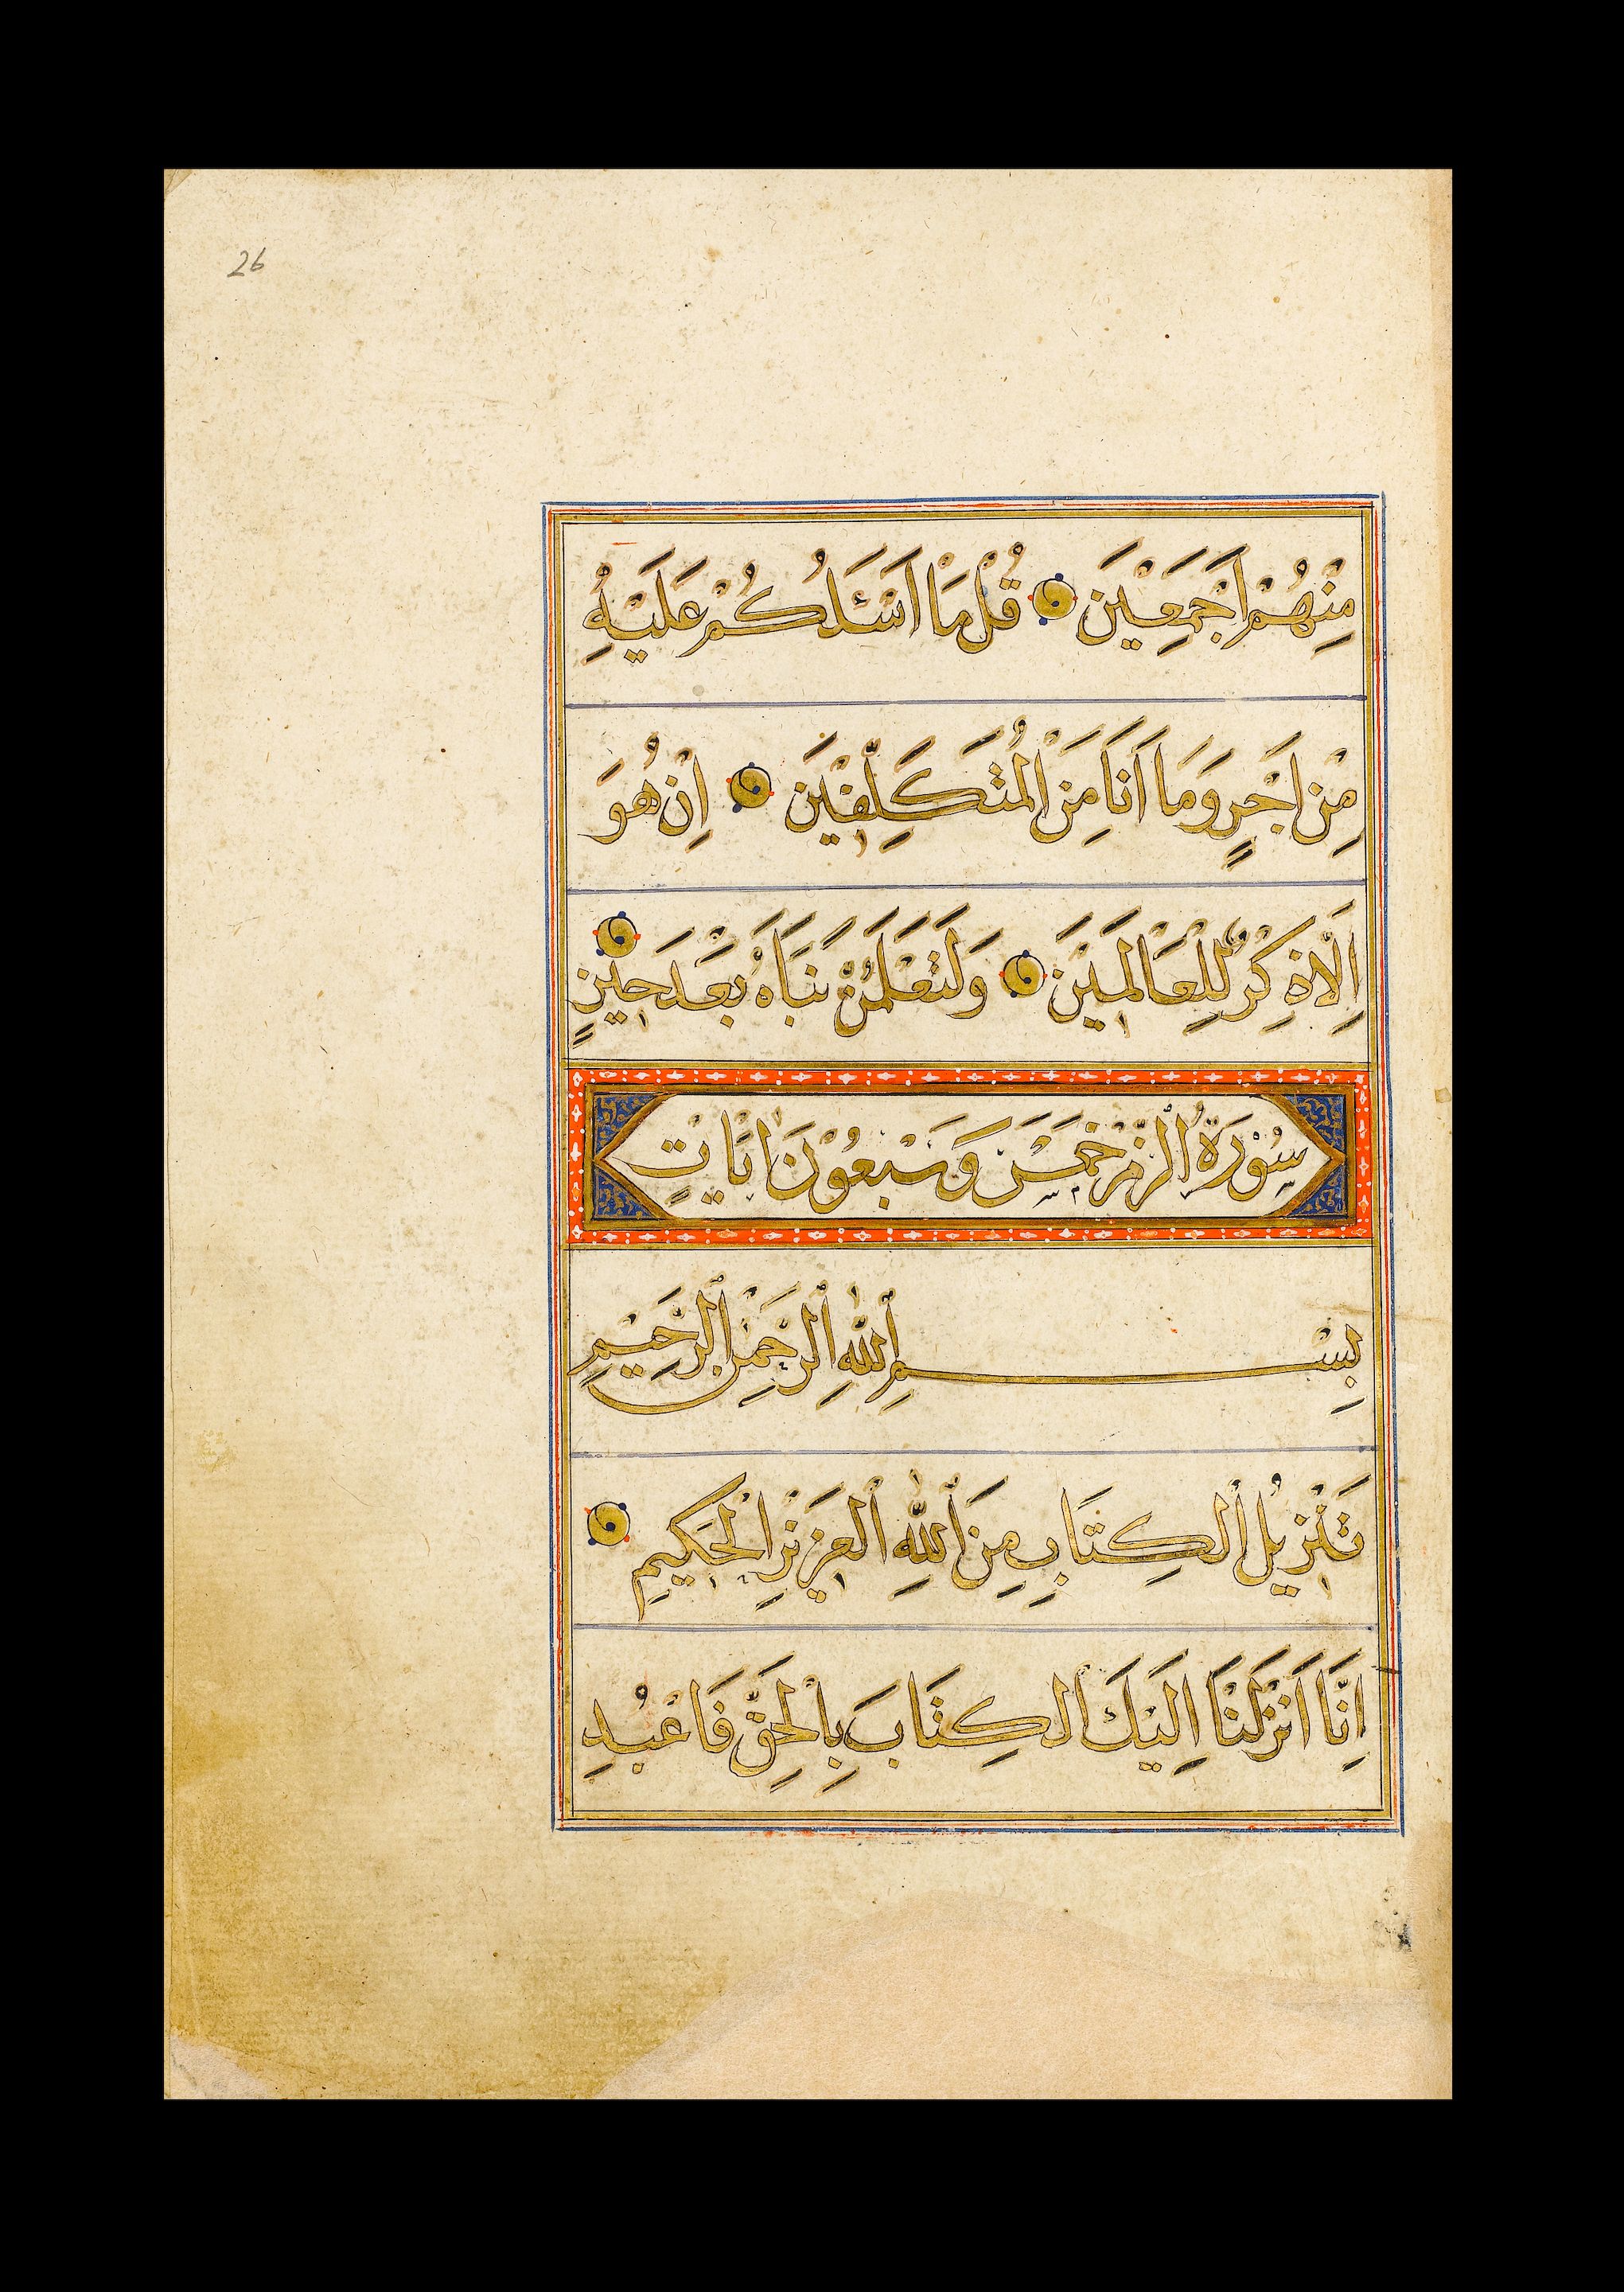 26
مِنْهُمْ اَجْمَعِيْنَ قُلْ مَا اَسْئَلُكُمْ عَلَيْهِ
مِنْ اَجْرٍ وَمَا اَنَا مِنَ الْمُتَكَلِّفِيْنَ اِنْ هُوَ
اِلَّا ذِكْرٌ لِلْعَالَمِيْنَ وَلَتَعْلَمُنَّ نَبَاَهُ بَعْدَ حِيْنٍ
سُوْرَةُ الزُّمَرِ خَمْسَ وَسَبْعُوْنَ اٰيَاتٍ
بِسْمِ اللّٰهِ الرَّحْمٰنِ الرَّحِيْمِ
تَنْزِيلُ الْكِتَابِ مِنَ اللّٰهِ الْعَزِيْزِ الْحَكِيمِ
اِنَّا اَنْزَلْنَا اِلَيْكَ الْكِتَابَ بِالْحَقِّ فَاعْبُدِ